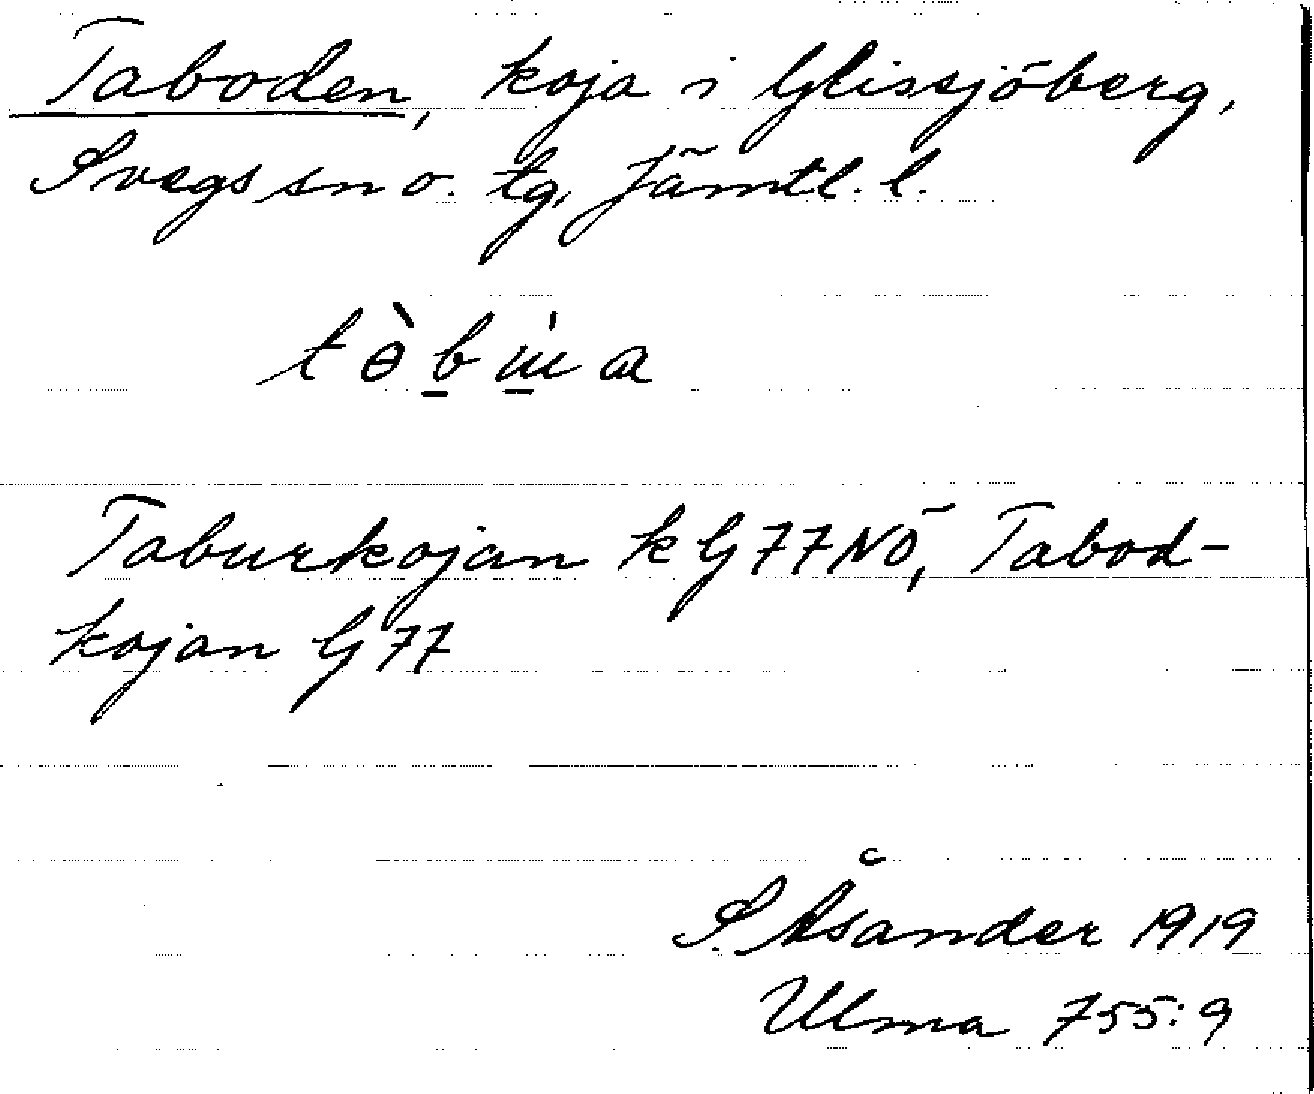 Taboden, koja i Glissjöberg,
Svegs sn o. tg, Jämtl. l.
Taburkojan k G77NÖ, Tabod-
kojan G77
S. Åsander 1919
Ulma 755:9